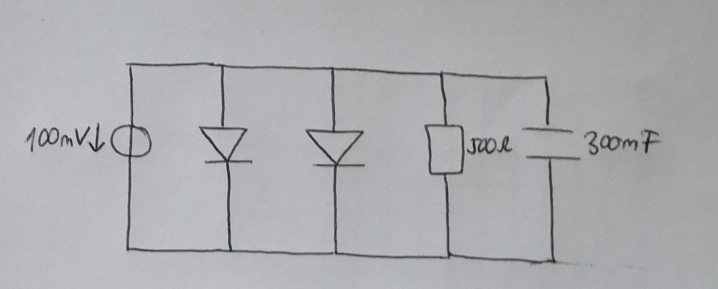 100mV↓
500Ω
300mF